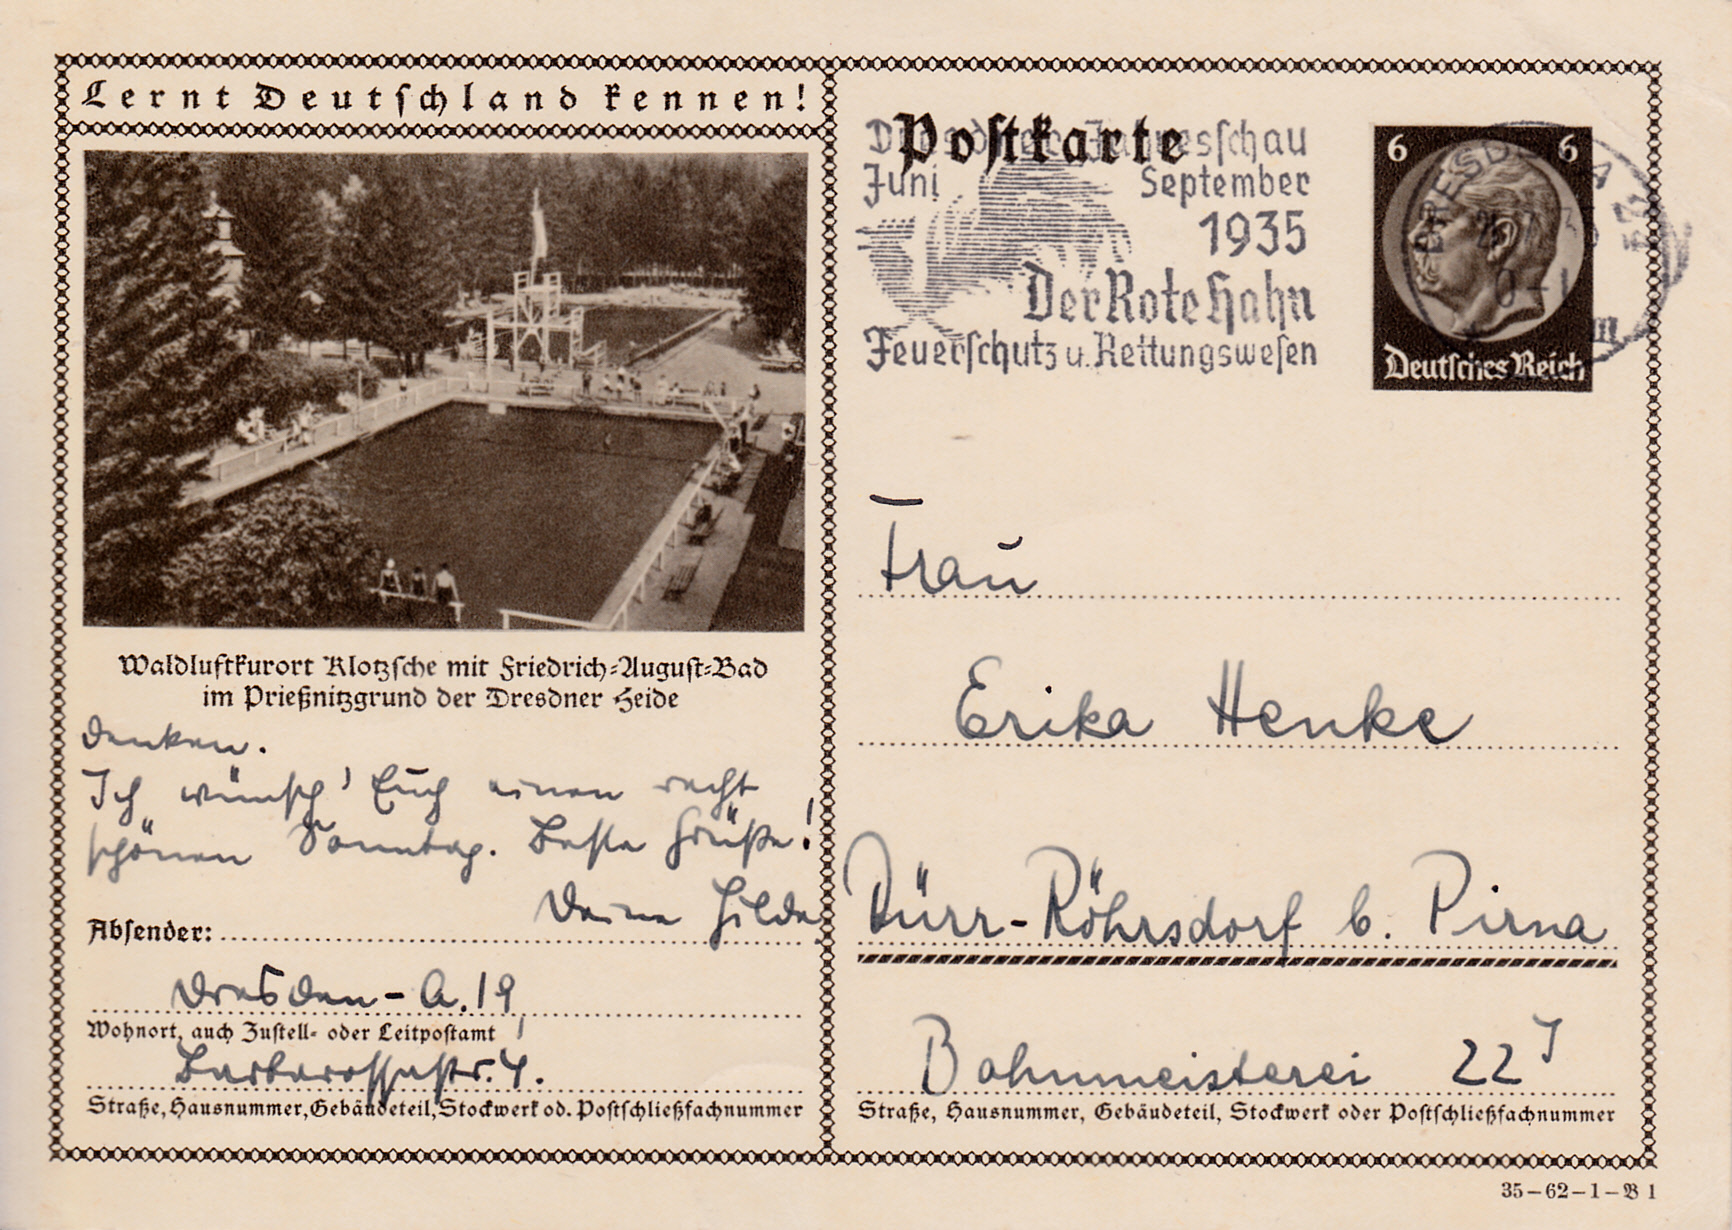 Lernt Deutschland kennen!
Waldluftkurort Klotzsche mit Friedrich-August-Bad
im Prießnitzgrund der Dresdner Heide
denken.
Ich wünsch' Euch einen recht
schönen Sonntag. Beste Grüße!
Deine Hilde
Absender:
Dresden-A. 19
Wohnort, auch Zustell- oder Leitpostamt
Barbarossastr. 4.
Straße, Hausnummer, Gebäudeteil, Stockwerk od. Postschließfachnummer
Postkarte
Dresdner Jahresschau
Juni September
1935
Der Rote Hahn
Feuerschutz u. Rettungswesen
6 6
DRESDEN A
Deutsches Reich
Frau
Erika Henke
Dürr-Röhrsdorf b. Pirna
Bahnmeisterei 22
Straße, Hausnummer, Gebäudeteil, Stockwerk oder Postschließfachnummer
35-62-1-B 1